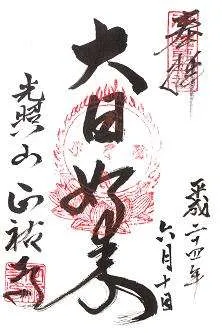 奉拝
大日如来
平成二十四年
六月十日
光照山 正祐寺